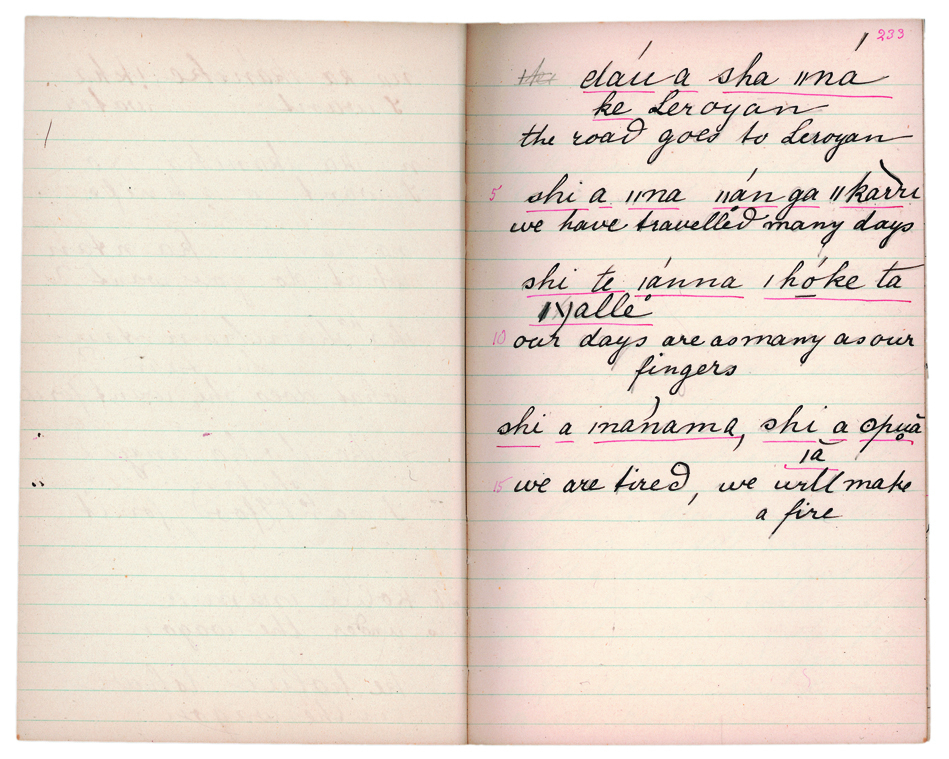 233
dáu a sha ǁná
ke Leroyan
the road goes to Leroyan
5 shi a ǁna ǁán ga ǁkárri
we have travelled many days
shi te ǀánna ǀhóke ta
ǀǀallé
10 our days are as many as our
fingers
shi a ǀnánama, shi a opuā
ǀā
15 we are tired, we will make
a fire